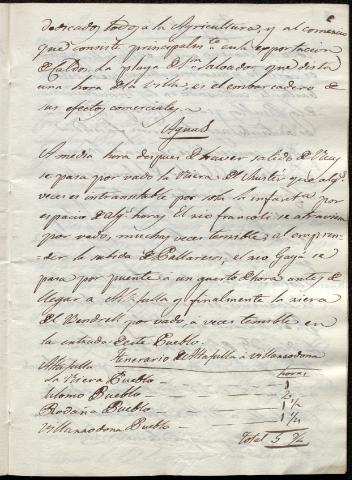 dedicados todos a la Agricultura, y al comercio
que consiste principalmte. en la exportacion
de caldos, la playa de Sn. Salvador que dista
una hora de la Villa es el embarcadero de
sus efectos comerciales.
Aguas
A media hora despues de haver salido de Reus
se pasa por vado la Riera que algs.
veces es intransitable por sola la infanta. por
espacio de algs. horas. El rio francoli se atraviesa
por vado, muchas veces temible; al empren-
der la subida de Pallaresos, el rio Gayá se
pasa por puente a un quarto de hora antes de
llegar a Altafulla y finalmente la riera
del Bendrell, por vado, a veces temible en
la entrada de este Pueblo.
Itinerario de Altafulla a Villarrodona
Altafulla horas
La Riera Pueblo 1
Salomo Pueblo
Rodoña Pueblo 1 1/2
Villarrodona Pueblo 1 1/2
Total 5